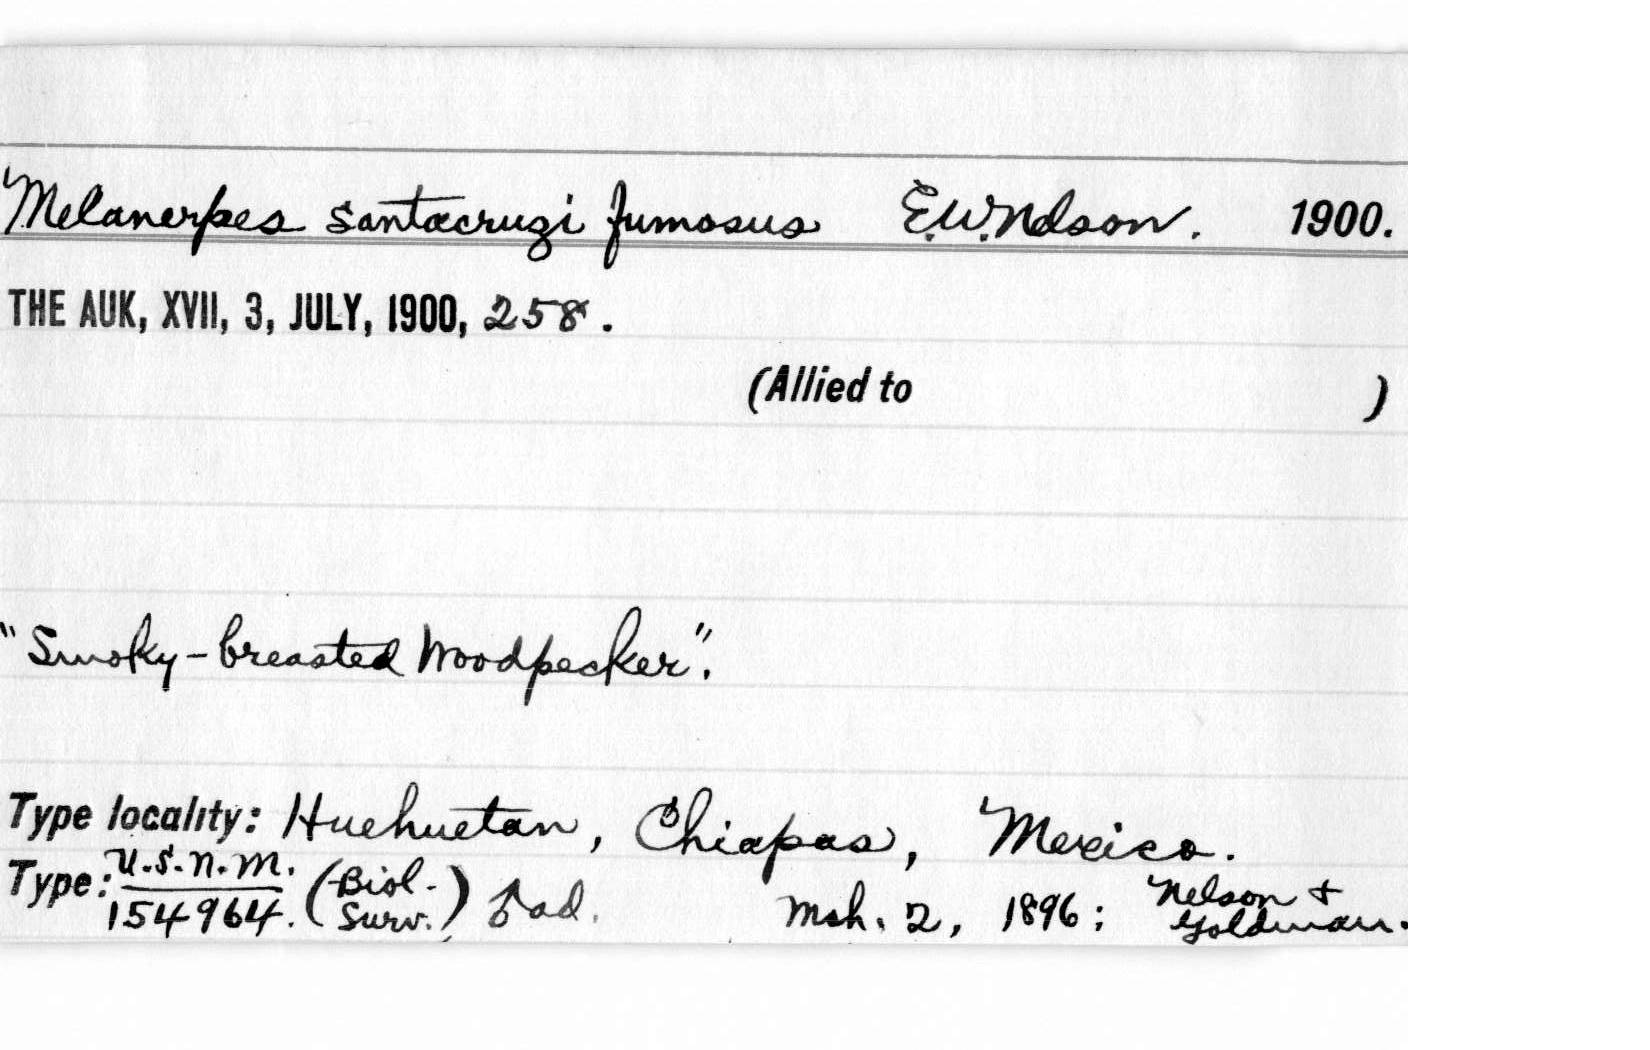 Melanerpes santacruzi fumosus E.W.Nelson. 1900.
THE AUK, XVII, 3, JULY, 1900, 258.
(Allied to )
"Smoky-breasted Woodpecker".
Type locality: Huehuetan, Chiapas, Mexico.
Type: U.S.N.M. 154964. (Biol. Surv.) ad. Mch. 2, 1896; Nelson & Goldman.